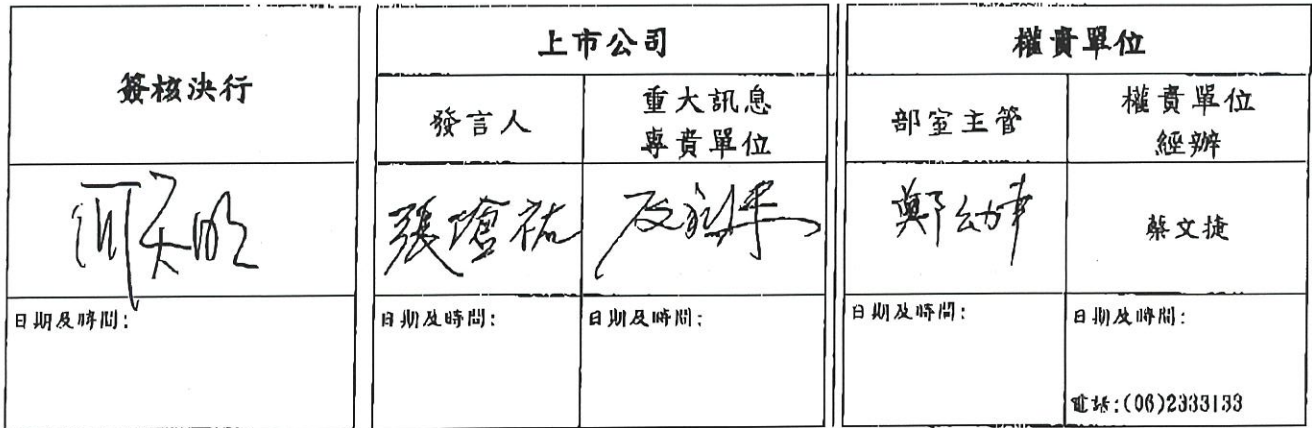 簽核決行
上市公司
權責單位
發言人
重大訊息
專責單位
部室主管
權責單位
經辦
張瓊祐
鄭幼
蔡文捷
日期及時間:
日期及時間:
日期及時間:
日期及時間:
日期及時間:
電話:(06)2333133